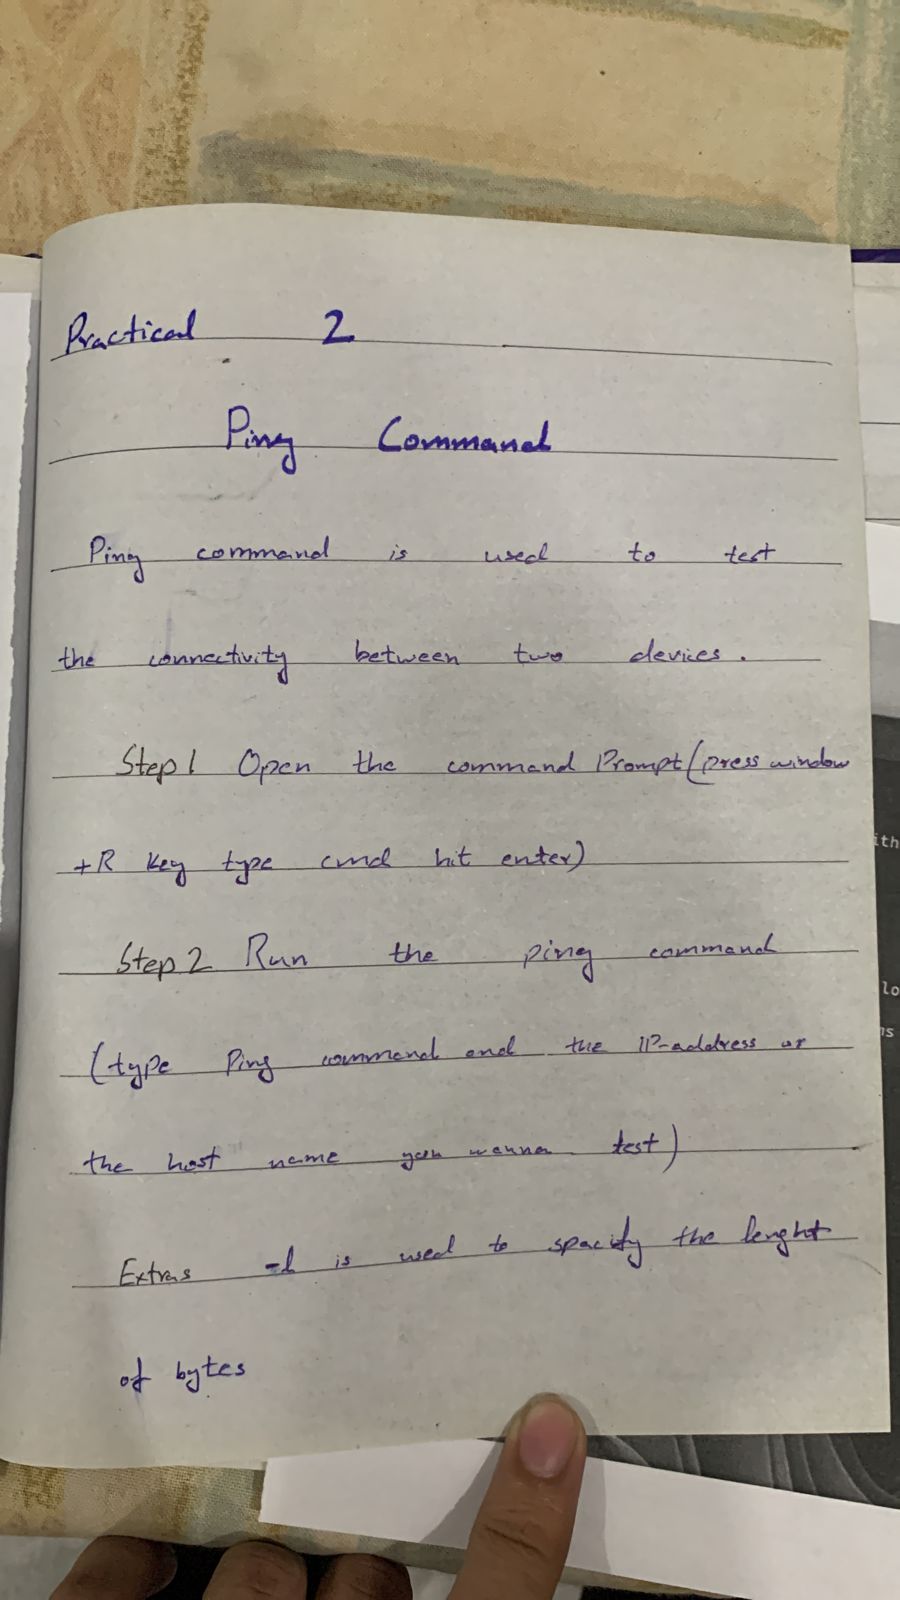 Practical 2
Ping Command
Ping command is used to test
the connectivity between two devices.
Step 1 Open the command Prompt (press window
+R key type cmd hit enter)
Step 2 Run the ping command
(type Ping command and the IP-address or
the host name you wanna test)
Extras -l is used to spacify the lenght
of bytes
ith
lo
is